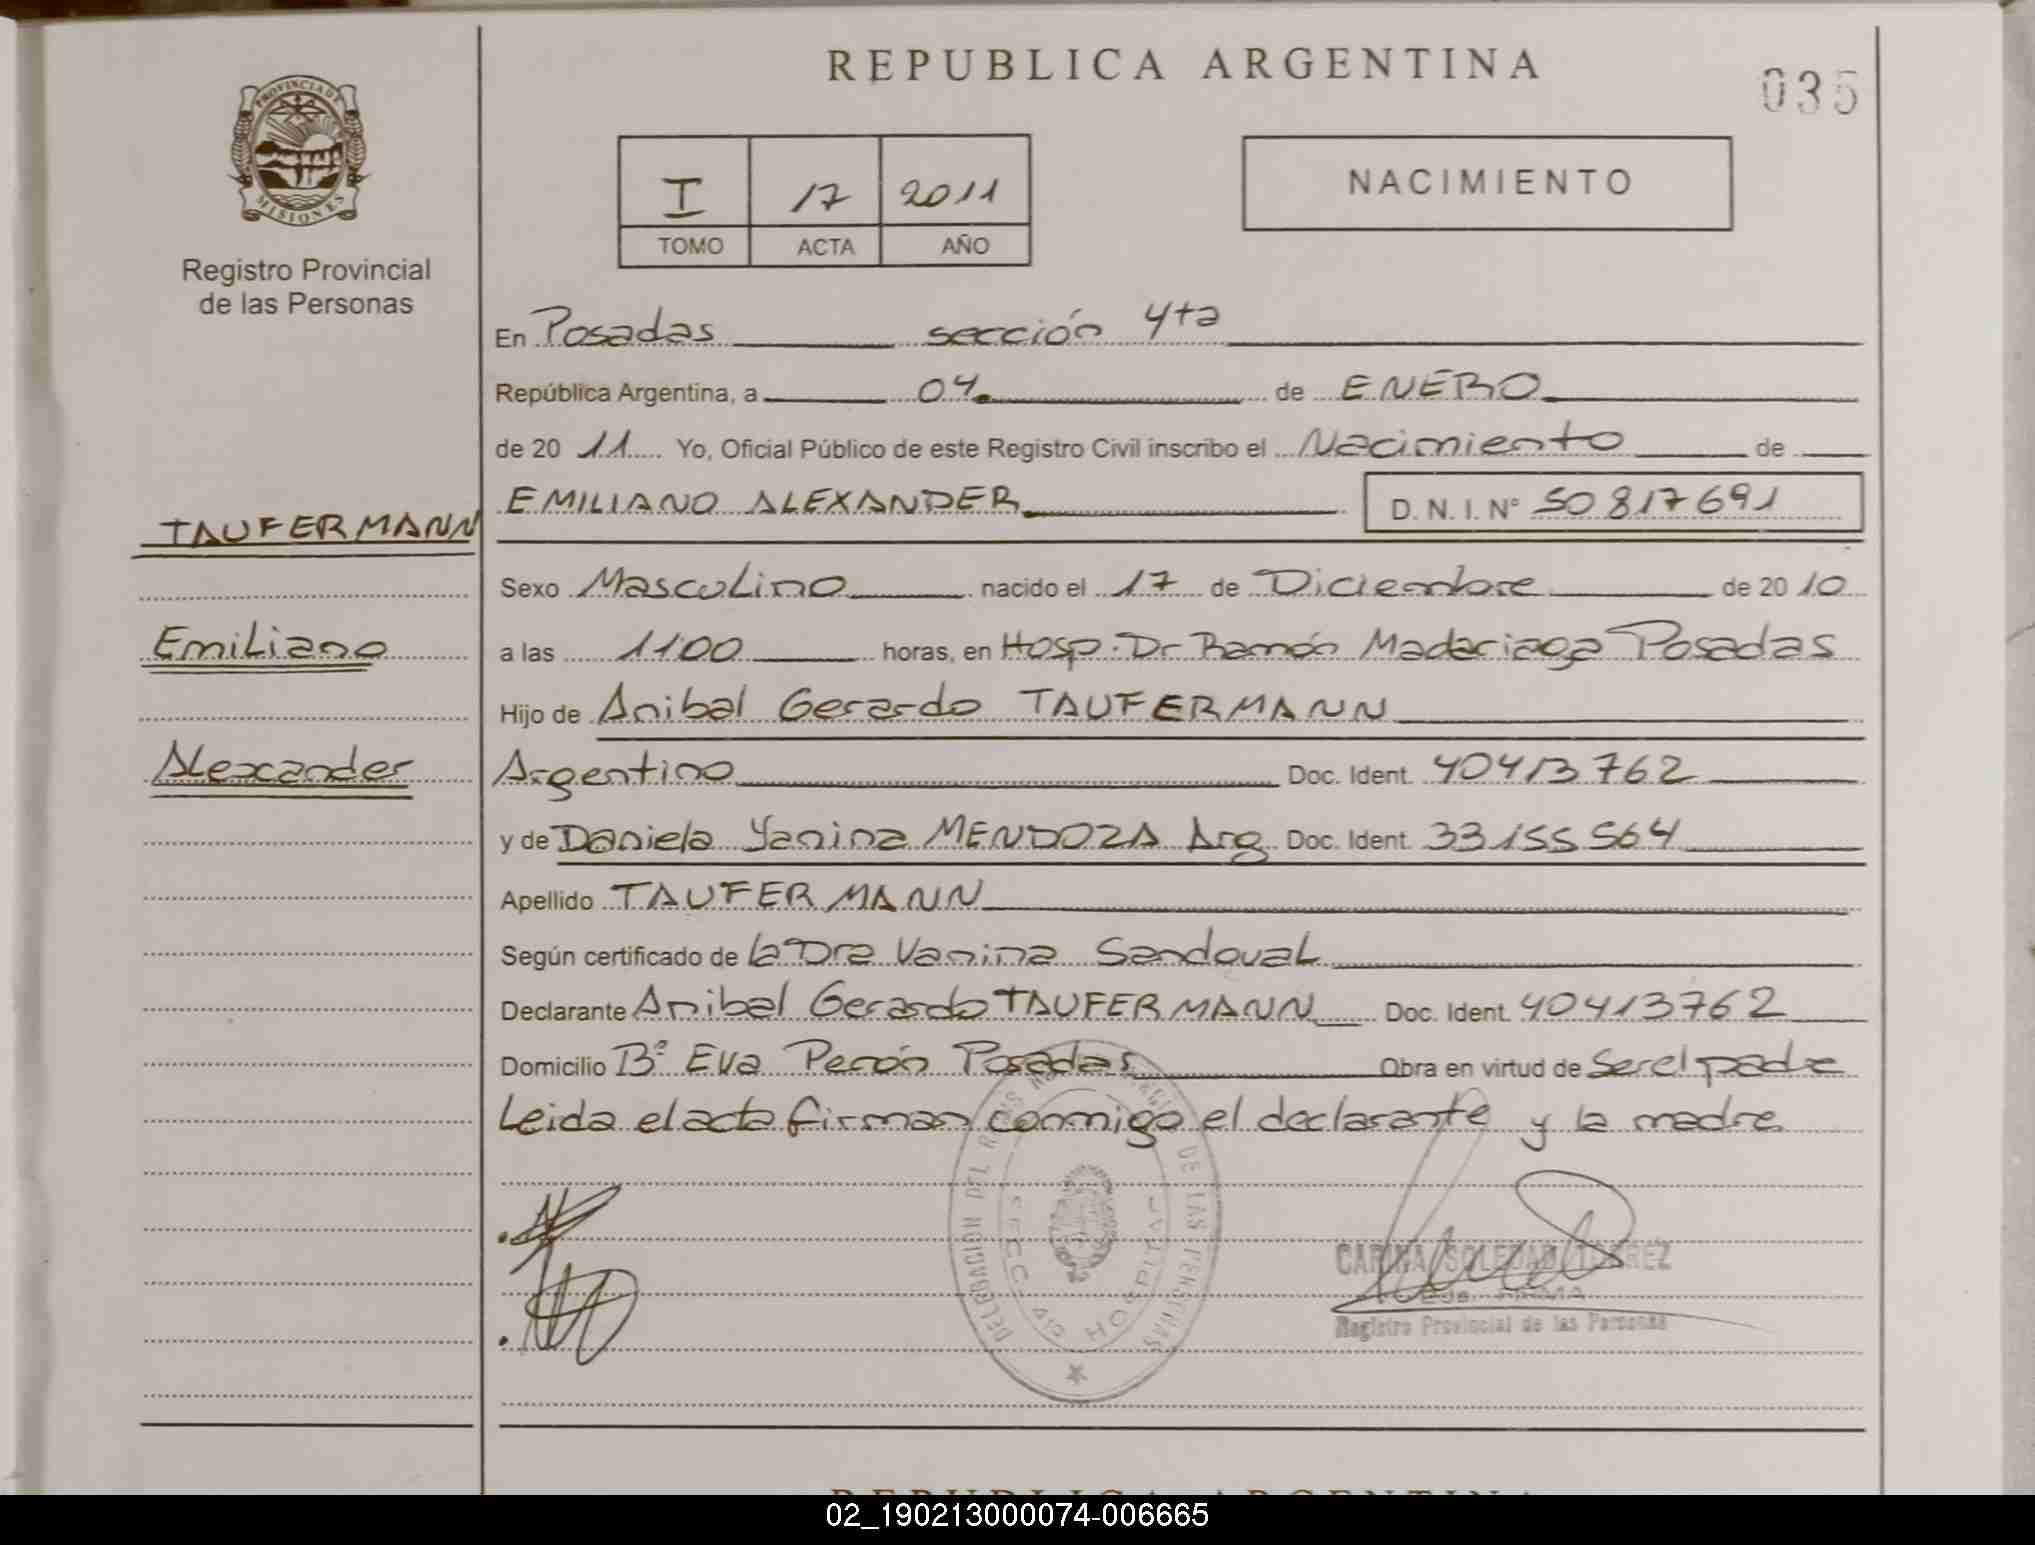 REPUBLICA ARGENTINA
035
PROVINCIA DE
MISIONES
Registro Provincial
de las Personas
I 17 2011
TOMO ACTA AÑO
NACIMIENTO
En Posadas sección 4ta
República Argentina, a 04 de ENERO
de 20 11 Yo, Oficial Público de este Registro Civil inscribo el Nacimiento de
EMILIANO ALEXANDER D. N. I. Nº 50817691
TAUFERMANN
Emiliano
Alexander
Sexo Masculino nacido el 17 de Diciembre de 20 10
a las 11:00 horas, en Hosp. Dr Ramón Madariaga Posadas
Hijo de Anibal Gerardo TAUFERMANN
Argentino Doc. Ident. 40413762
y de Daniela Yanina MENDOZA Arg Doc. Ident. 33155564
Apellido TAUFERMANN
Según certificado de la Dra Vanina Sandoval
Declarante Anibal Gerardo TAUFERMANN Doc. Ident. 40413762
Domicilio Bº Eva Perón Posadas Obra en virtud de Ser el padre
Leida el acta firman conmigo el declarante y la madre
DELEGACION DEL DE LAS PERSONAS
SECC 4ta HOSPITAL
CARINA SOLEDAD
Registro Provincial de las Personas
REPUBLICA ARGENTINA
02_190213000074-006665